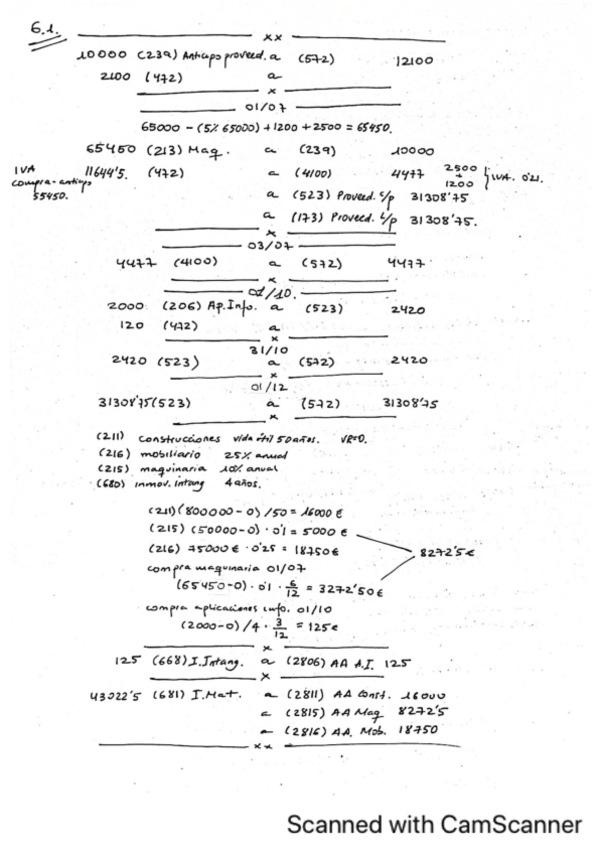 6.1.
xx
10000 (239) Anticipo proveed. a (572) 12100
2100 (472) a
x
01/07
65000 - (5% 65000) + 1200 + 2500 = 65450.
65450 (213) Maq. a (239) 10000
IVA compra-anticipo 55450. 11644'5. (472) a (4100) 4477 2500 + 1200 } IVA. 0'21.
a (523) Proveed. S/p 31308'75
a (173) Proveed. L/p 31308'75.
x
03/07
4477 (4100) a (572) 4477
x
01/10.
2000 (206) Ap. Info. a (523) 2420
120 (472) a
x
31/10
2420 (523) a (572) 2420
x
01/12
31308'75 (523) a (572) 31308'75
x
(211) construcciones vida útil 50 años. VR=0.
(216) mobiliario 25% anual
(215) maquinaria 10% anual
(680) inmov. intang 4 años.
(211) (800000-0)/50 = 16000 €
(215) (50000-0) · 0'1 = 5000 €
(216) 75000 € · 0'25 = 18750 €
8272'5 €
compra maquinaria 01/07
(65450-0) · 0'1 · 6/12 = 3272'50 €
compra aplicaciones info. 01/10
(2000-0)/4 · 3/12 = 125 €
x
125 (668) I. Intang. a (2806) AA A.I. 125
x
43022'5 (681) I. Mat. a (2811) AA Const. 16000
a (2815) AA Maq 8272'5
a (2816) AA. Mob. 18750
xx
Scanned with CamScanner